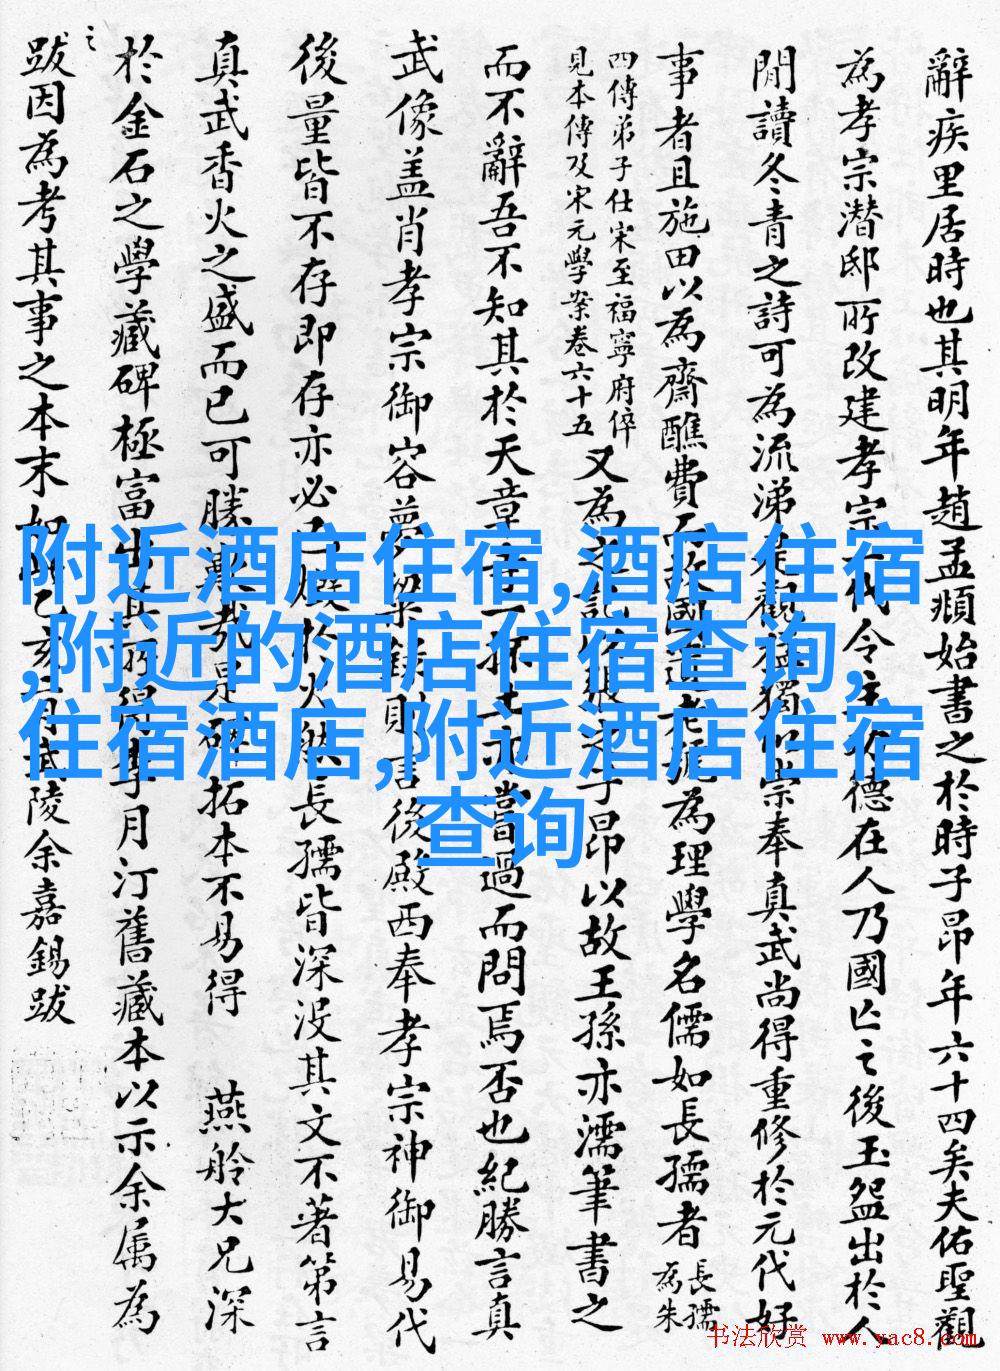 辭疾里居時也其明年趙孟頫始書之於時子昂年六十四矣夫佑聖觀
為孝宗潛邸所改建孝宗一代令主德在人乃國亡之後玉盌出於人
間讀冬青之詩可為流涕觀獨宗奉真武尚得重修於元代好
事者且施田以為齋醮費國老為理學名儒如長孺者長孺為朱
四傳弟子仕宋至福寧府倅
見本傳及宋元學案卷六十五
又為之記子昂以故王孫亦濡筆書之
而不辭吾不知其於天章過而問焉否也紀勝言真
武像蓋肖孝宗御容夢粱錄則言後殿西奉孝宗神御易代
後量皆不存即存亦必已燬於火然長孺皆深沒其文不著第言
真武香火之盛而已可勝歎哉是碑拓本不易得 燕舲大兄深
於金石之學藏碑極富出其所得李月汀舊藏本以示余属為
之
跋因為考其事之本末如此乙亥武陵余嘉錫跋
附近酒店住宿,酒店住宿
,附近的酒店住宿查询,
住宿酒店,附近酒店住宿
查询
书法欣赏 www.yac8.com